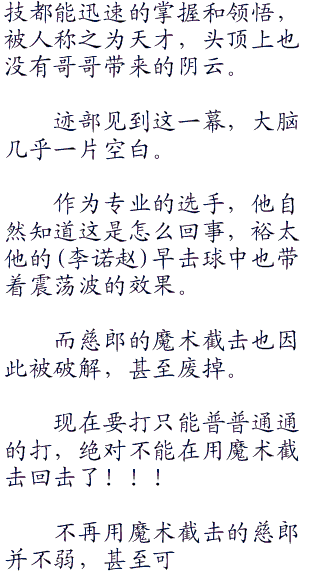 技都能迅速的掌握和领悟，
被人称之为天才，头顶上也
没有哥哥带来的阴云。
迹部见到这一幕，大脑
几乎一片空白。
作为专业的选手，他自
然知道这是怎么回事，裕太
他的(李诺赵)早击球中也带
着震荡波的效果。
而慈郎的魔术截击也因
此被破解，甚至废掉。
现在要打只能普普通通
的打，绝对不能在用魔术截
击回击了！！！
不再用魔术截击的慈郎
并不弱，甚至可